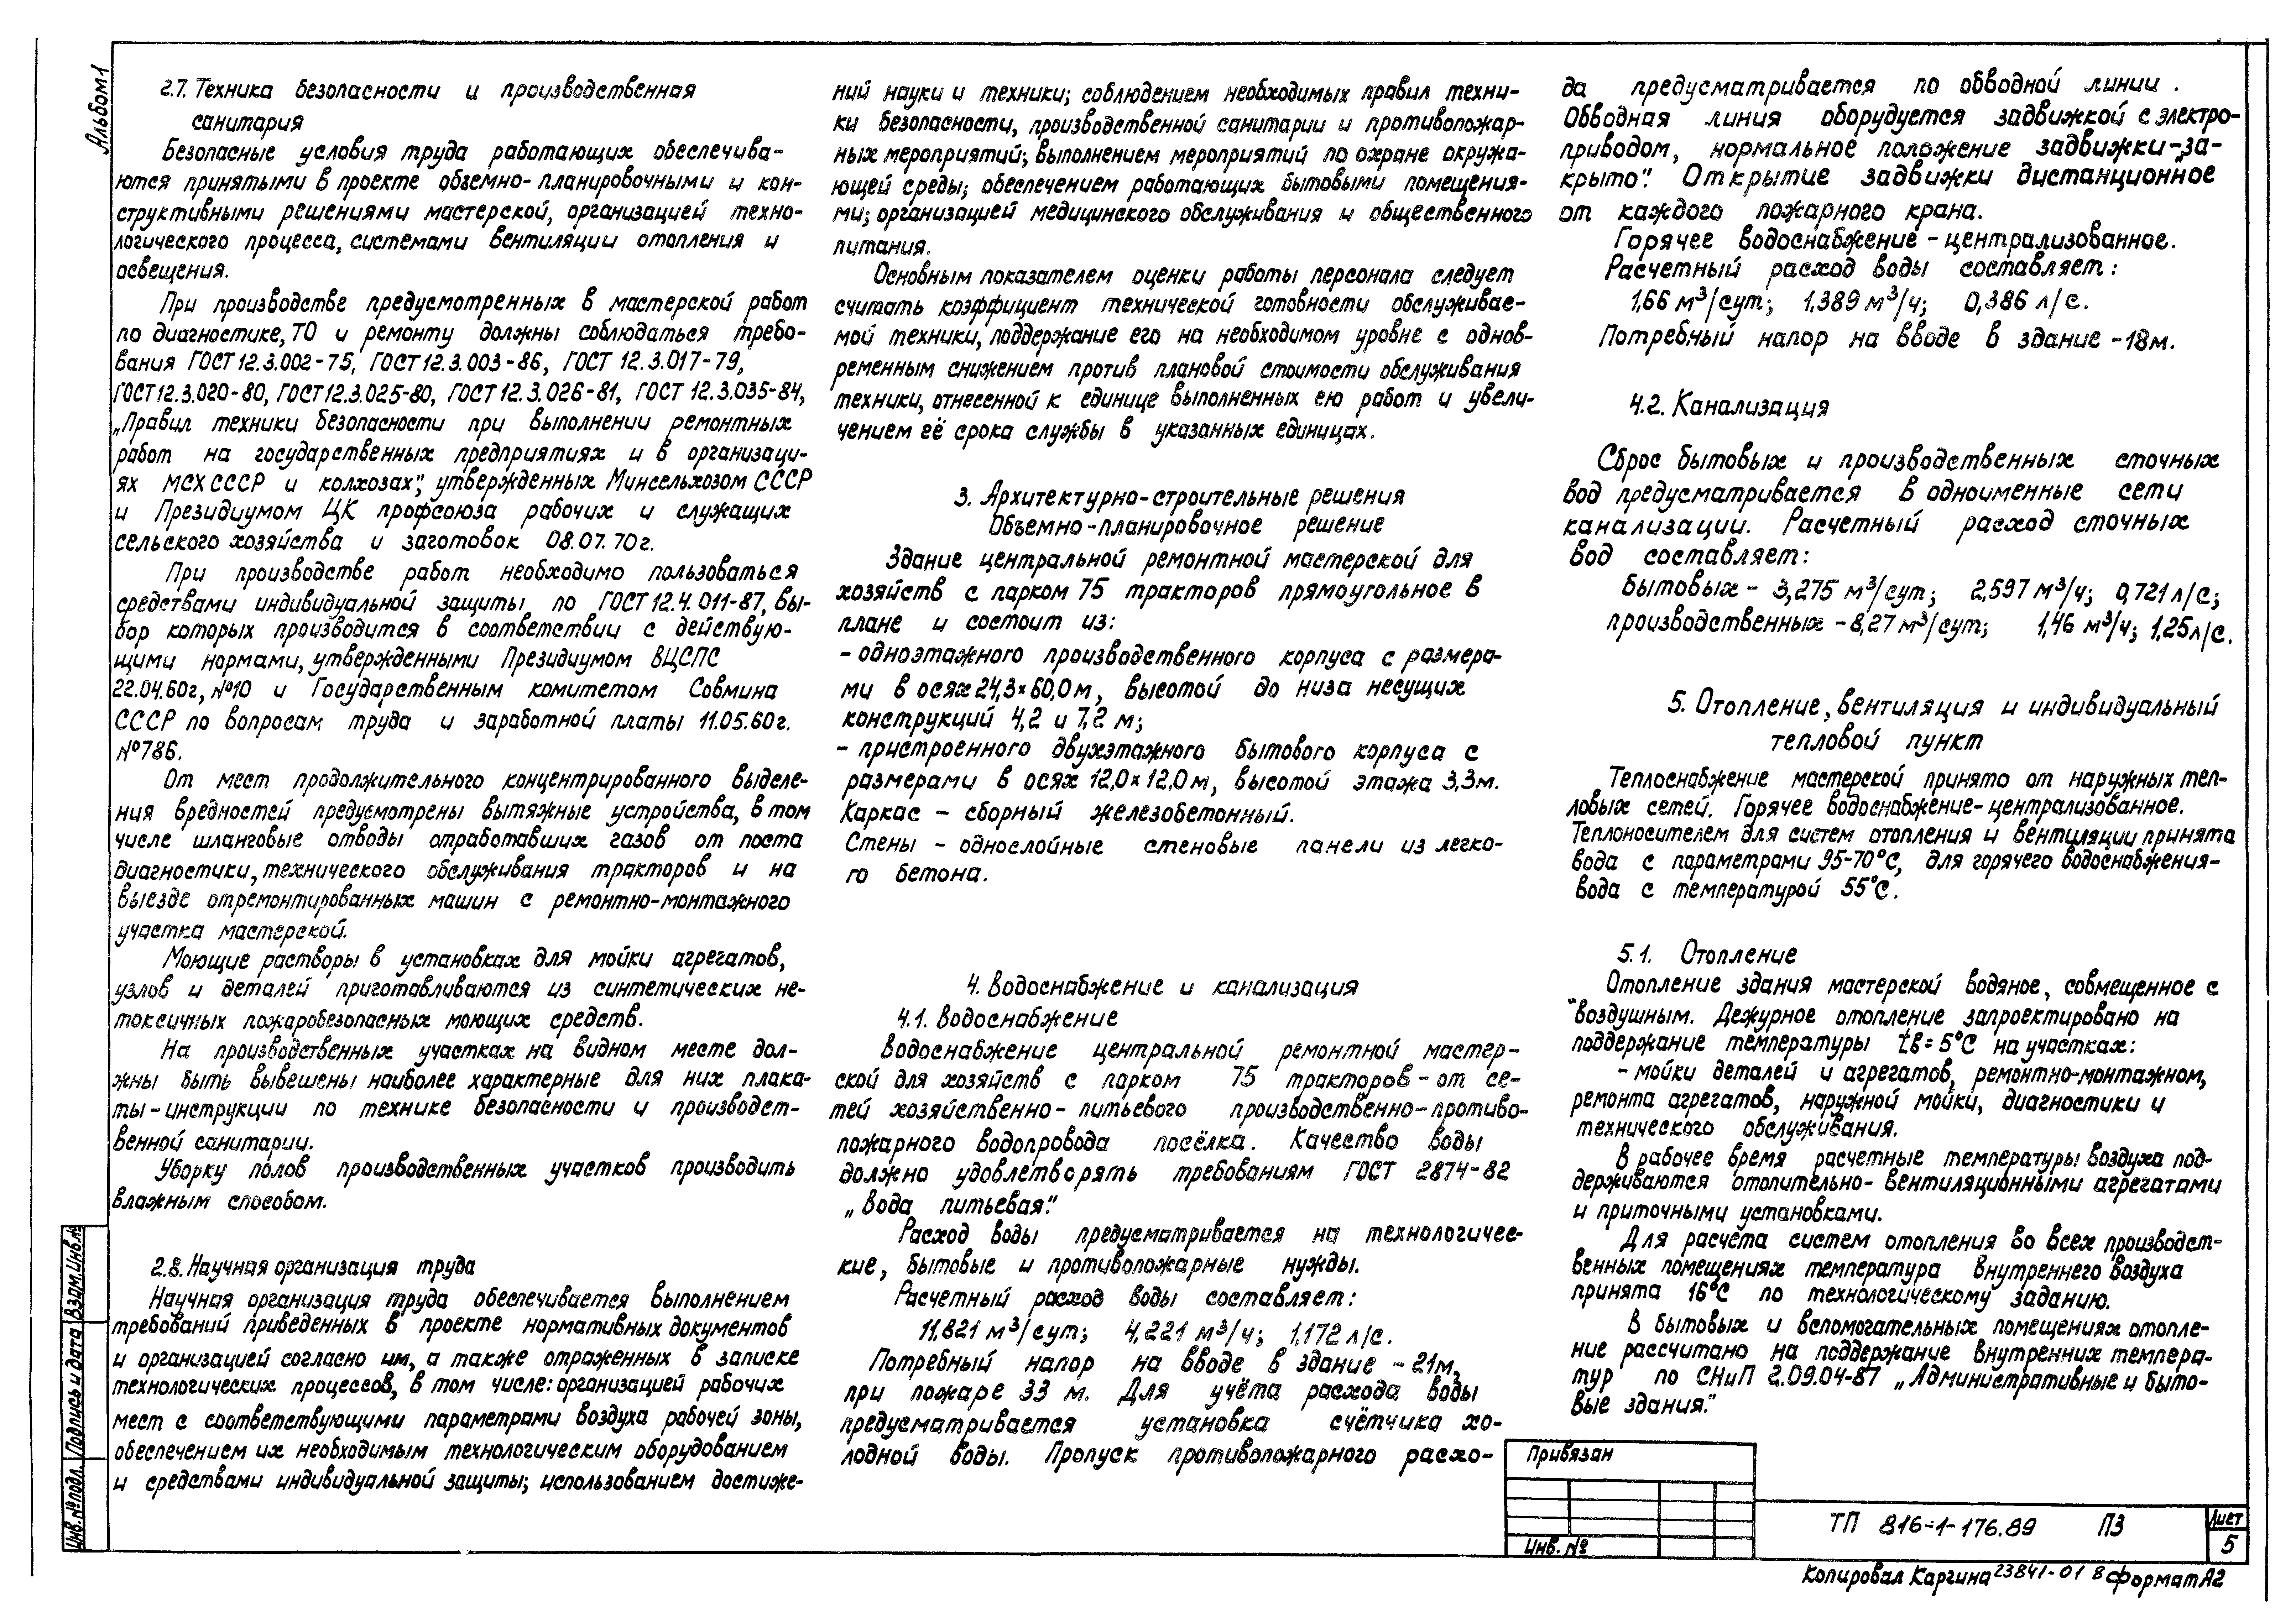 Альбом 1
2.7. Техника безопасности и производственная
санитария
Безопасные условия труда работающих обеспечива-
ются принятыми в проекте объемно-планировочными и кон-
структивными решениями мастерской, организацией техно-
логического процесса, системами вентиляции отопления и
освещения.
При производстве предусмотренных в мастерской работ
по диагностике, ТО и ремонту должны соблюдаться требо-
вания ГОСТ 12.3.002-75, ГОСТ 12.3.003-86, ГОСТ 12.3.017-79,
ГОСТ 12.3.020-80, ГОСТ 12.3.025-80, ГОСТ 12.3.026-81, ГОСТ 12.3.035-84,
„Правил техники безопасности при выполнении ремонтных
работ на государственных предприятиях и в организаци-
ях МСХ СССР и колхозах", утвержденных Минсельхозом СССР
и Президиумом ЦК профсоюза рабочих и служащих
сельского хозяйства и заготовок 08.07.70г.
При производстве работ необходимо пользоваться
средствами индивидуальной защиты по ГОСТ 12.4.011-87, вы-
бор которых производится в соответствии с действую-
щими нормами, утвержденными Президиумом ВЦСПС
22.04.60г, №10 и Государственным комитетом Совмина
СССР по вопросам труда и заработной платы 11.05.60г.
№786.
От мест продолжительного концентрированного выделе-
ния вредностей предусмотрены вытяжные устройства, в том
числе шланговые отводы отработавших газов от поста
диагностики, технического обслуживания тракторов и на
выезде отремонтированных машин с ремонтно-монтажного
участка мастерской.
Моющие растворы в установках для мойки агрегатов,
узлов и деталей приготавливаются из синтетических не-
токсичных пожаробезопасных моющих средств.
На производственных участках на видном месте дол-
жны быть вывешены наиболее характерные для них плака-
ты-инструкции по технике безопасности и производст-
венной санитарии.
Уборку полов производственных участков производить
влажным способом.
2.8. Научная организация труда
Научная организация труда обеспечивается выполнением
требований приведенных в проекте нормативных документов
и организацией согласно им, а также отраженных в записке
технологических процессов, в том числе: организацией рабочих
мест с соответствующими параметрами воздуха рабочей зоны,
обеспечением их необходимым технологическим оборудованием
и средствами индивидуальной защиты; использованием достиже-
ний науки и техники; соблюдением необходимых правил техни-
ки безопасности, производственной санитарии и противопожар-
ных мероприятий; выполнением мероприятий по охране окружа-
ющей среды; обеспечением работающих бытовыми помещения-
ми; организацией медицинского обслуживания и общественного
питания.
Основным показателем оценки работы персонала следует
считать коэффициент технической готовности обслуживае-
мой техники, поддержание его на необходимом уровне с однов-
ременным снижением против плановой стоимости обслуживания
техники, отнесенной к единице выполненных ею работ и увели-
чением её срока службы в указанных единицах.
3. Архитектурно-строительные решения
Объемно-планировочное решение
Здание центральной ремонтной мастерской для
хозяйств с парком 75 тракторов прямоугольное в
плане и состоит из:
- одноэтажного производственного корпуса с размера-
ми в осях 24,3×60,0 м, высотой до низа несущих
конструкций 4,2 и 7,2 м;
- пристроенного двухэтажного бытового корпуса с
размерами в осях 12,0×12,0 м, высотой этажа 3,3м.
Каркас - сборный железобетонный.
Стены - однослойные стеновые панели из легко-
го бетона.
4. Водоснабжение и канализация
4.1. Водоснабжение
Водоснабжение центральной ремонтной мастер-
ской для хозяйств с парком 75 тракторов - от се-
тей хозяйственно-питьевого производственно-противо-
пожарного водопровода посёлка. Качество воды
должно удовлетворять требованиям ГОСТ 2874-82
„Вода питьевая".
Расход воды предусматривается на технологичес-
кие, бытовые и противопожарные нужды.
Расчетный расход воды составляет:
11,821 м³/сут; 4,221 м³/ч; 1,172 л/с.
Потребный напор на вводе в здание - 21м,
при пожаре 33 м. Для учёта расхода воды
предусматривается установка счётчика хо-
лодной воды. Пропуск противопожарного расхо-
да предусматривается по обводной линии.
Обводная линия оборудуется задвижкой с электро-
приводом, нормальное положение задвижки-„за-
крыто". Открытие задвижки дистанционное
от каждого пожарного крана.
Горячее водоснабжение - централизованное.
Расчетный расход воды составляет:
1,66 м³/сут; 1.389 м³/ч; 0,386 л/с.
Потребный напор на вводе в здание - 18м.
4.2. Канализация
Сброс бытовых и производственных сточных
вод предусматривается в одноименные сети
канализации. Расчетный расход сточных
вод составляет:
бытовых - 3,275 м³/сут; 2,597 м³/ч; 0,721 л/с;
производственных - 8,27 м³/сут; 1,46 м³/ч; 1,25 л/с.
5. Отопление, вентиляция и индивидуальный
тепловой пункт
Теплоснабжение мастерской принято от наружных теп-
ловых сетей. Горячее водоснабжение - централизованное.
Теплоносителем для систем отопления и вентиляции принята
вода с параметрами 95-70°С, для горячего водоснабжения-
вода с температурой 55°С.
5.1. Отопление
Отопление здания мастерской водяное, совмещенное с
воздушным. Дежурное отопление запроектировано на
поддержание температуры tв = 5°С на участках:
- мойки деталей и агрегатов, ремонтно-монтажном,
ремонта агрегатов, наружной мойки, диагностики и
технического обслуживания.
В рабочее время расчетные температуры воздуха под-
держиваются отопительно-вентиляционными агрегатами
и приточными установками.
Для расчета систем отопления во всех производст-
венных помещениях температура внутреннего воздуха
принята 16°С по технологическому заданию.
В бытовых и вспомогательных помещениях отопле-
ние рассчитано на поддержание внутренних темпера-
тур по СНиП 2.09.04-87 „Административные и быто-
вые здания".
Привязан
Инв. №
ТП 816-1-176.89 ПЗ
Лист
5
Копировал Каргина 23841-01 8 Формат А2
Взам. Инв.№
Подпись и дата
Инв. № подл.